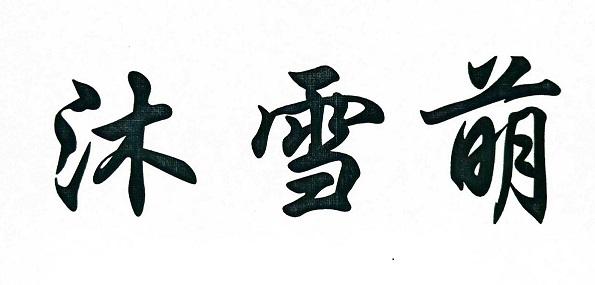 沐雪萌